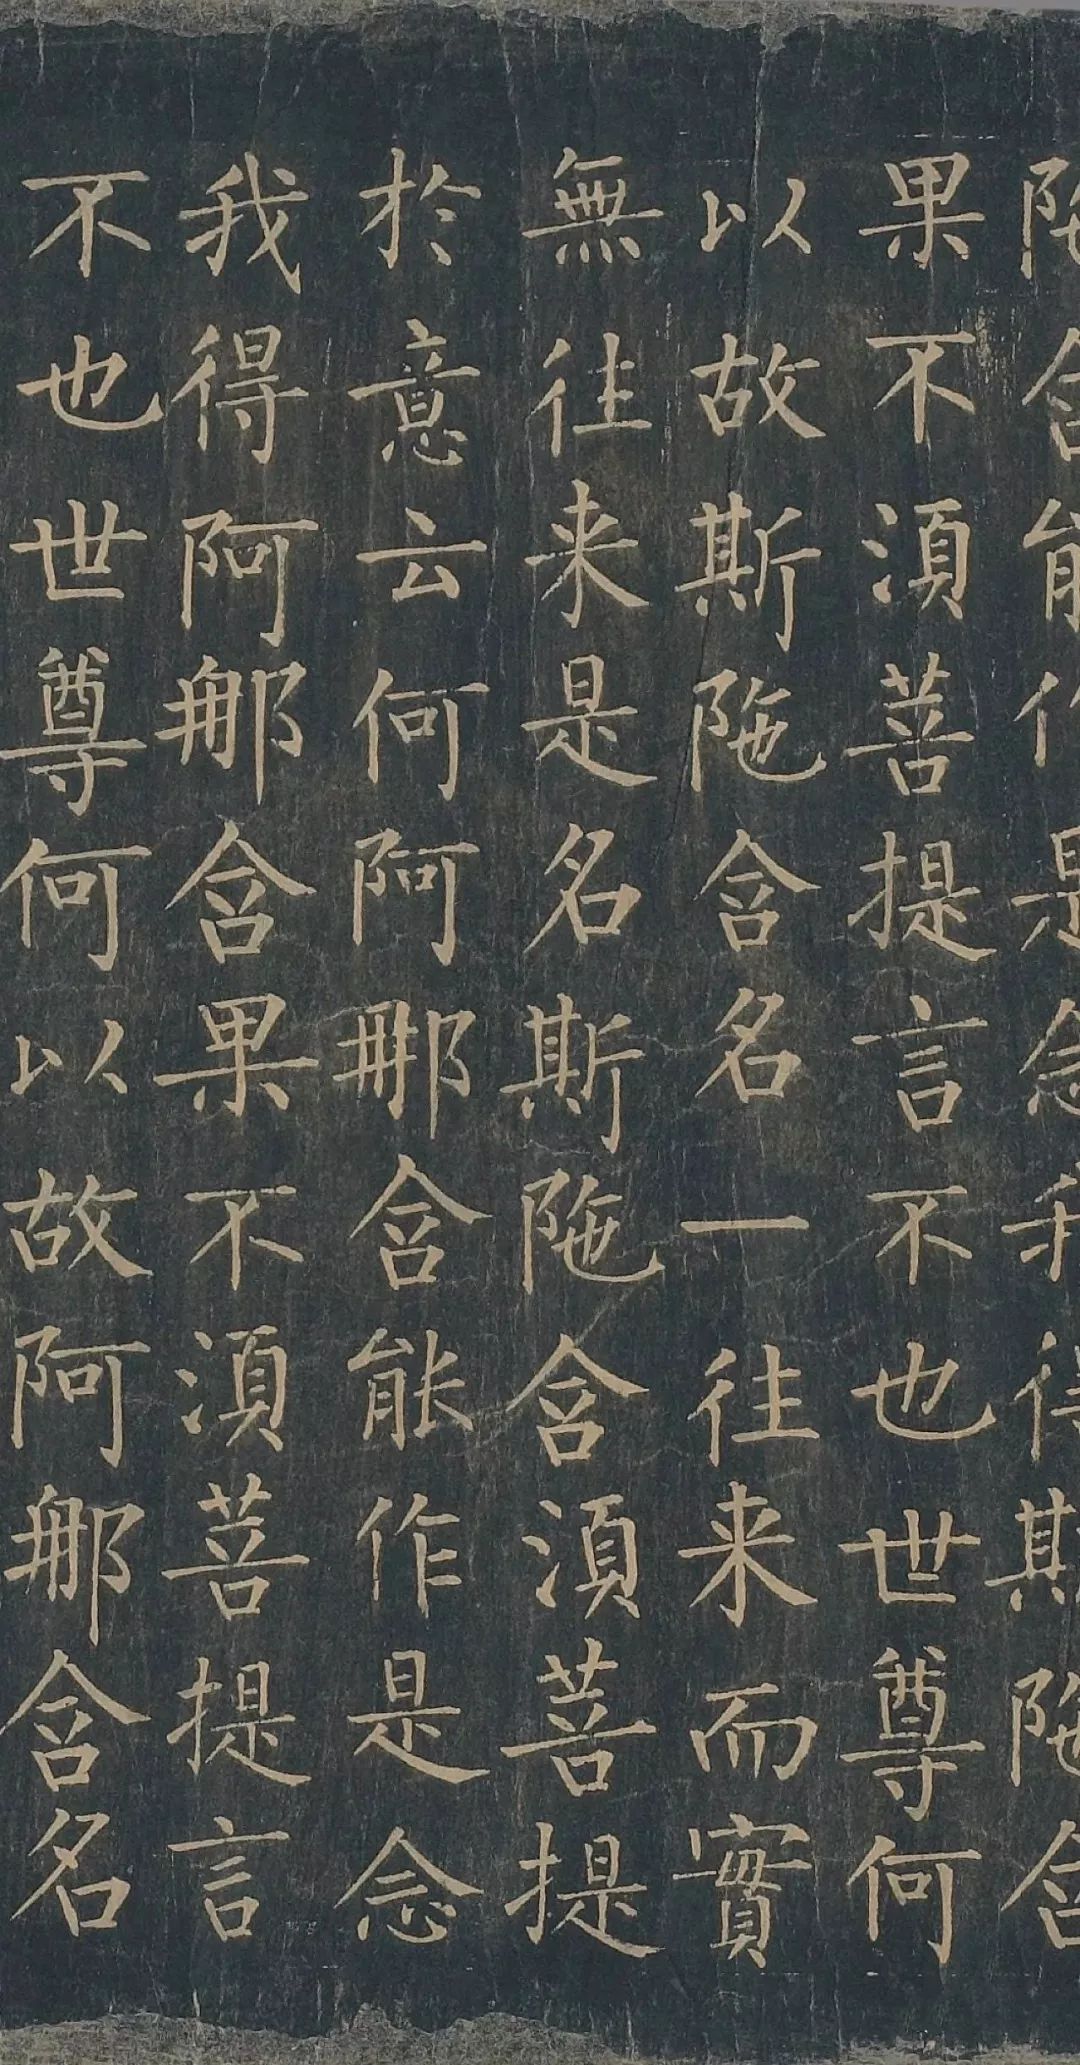 陁含能作是念我得斯陁含
果不須菩提言不也世尊何
以故斯陁含名一往来而實
無往来是名斯陁含須菩提
於意云何阿那含能作是念
我得阿那含果不須菩提言
不也世尊何以故阿那含名